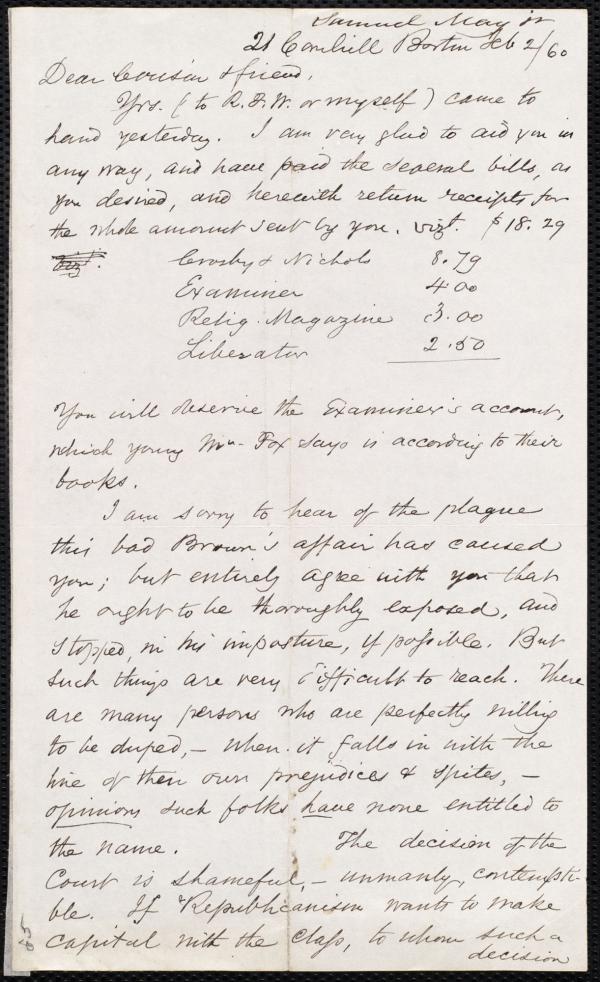 Samuel May Jr
21 Cornhill Boston Feb 2/60
Dear Cousin & friend,
Yrs. (to R.F.W. or myself) came to
hand yesterday. I am very glad to aid you in
any way, and have paid the several bills, as
you desired, and herewith return receipts for
the whole amount sent by you. vizt. $18.29
vizt. Crosby & Nichols 8.79
Examiner 4.00
Relig. Magazine 3.00
Liberator 2.50
You will observe the Examiner's account,
which young Mr. Fox says is according to their
books.
I am sorry to hear of the plague
this bad Brown's affair has caused
you; but entirely agree with you that
he ought to be thoroughly exposed, and
stopped, in his imposture, if possible. But
such things are very difficult to reach. There
are many persons who are perfectly willing
to be duped, – when it falls in with the
line of their own prejudices & spites, –
opinions such folks have none entitled to
the name. The decision of the
Court is shameful, – unmanly, contempti-
ble. If Republicanism wants to make
capital with the class, to whom such a
decision